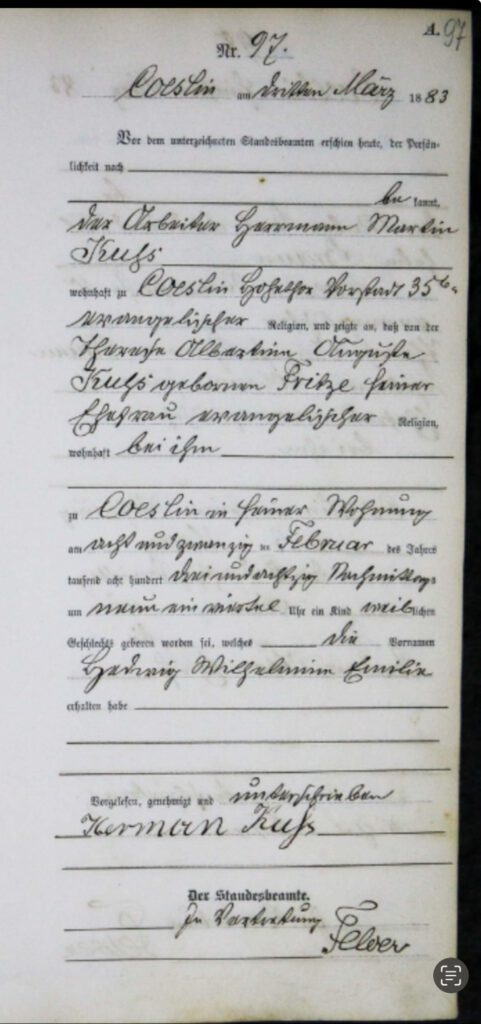 A. 97
Nr. 97.
Coeslin am dritten März 1883
Vor dem unterzeichneten Standesbeamten erschien heute, der Persön-
lichkeit nach
be kannt,
der Arbeiter Herrmann Martin
Kuhs
wohnhaft zu Coeslin Hohethor Vorstadt 35b.
evangelischer Religion, und zeigte an, daß von der
Therese Albertine Auguste
Kuhs gebornen Fritze seiner
Ehefrau evangelischer Religion,
wohnhaft bei ihm
zu Coeslin in seiner Wohnung
am acht und zwanzig ten Februar des Jahres
tausend acht hundert drei und achtzig Nachmittags
um neun ein viertel Uhr ein Kind weiblichen
Geschlechts geboren worden sei, welches die Vornamen
Hedwig Wilhelmine Emilie
erhalten habe
Vorgelesen, genehmigt und unterschrieben
Herman Kuhs
Der Standesbeamte.
In Vertretung